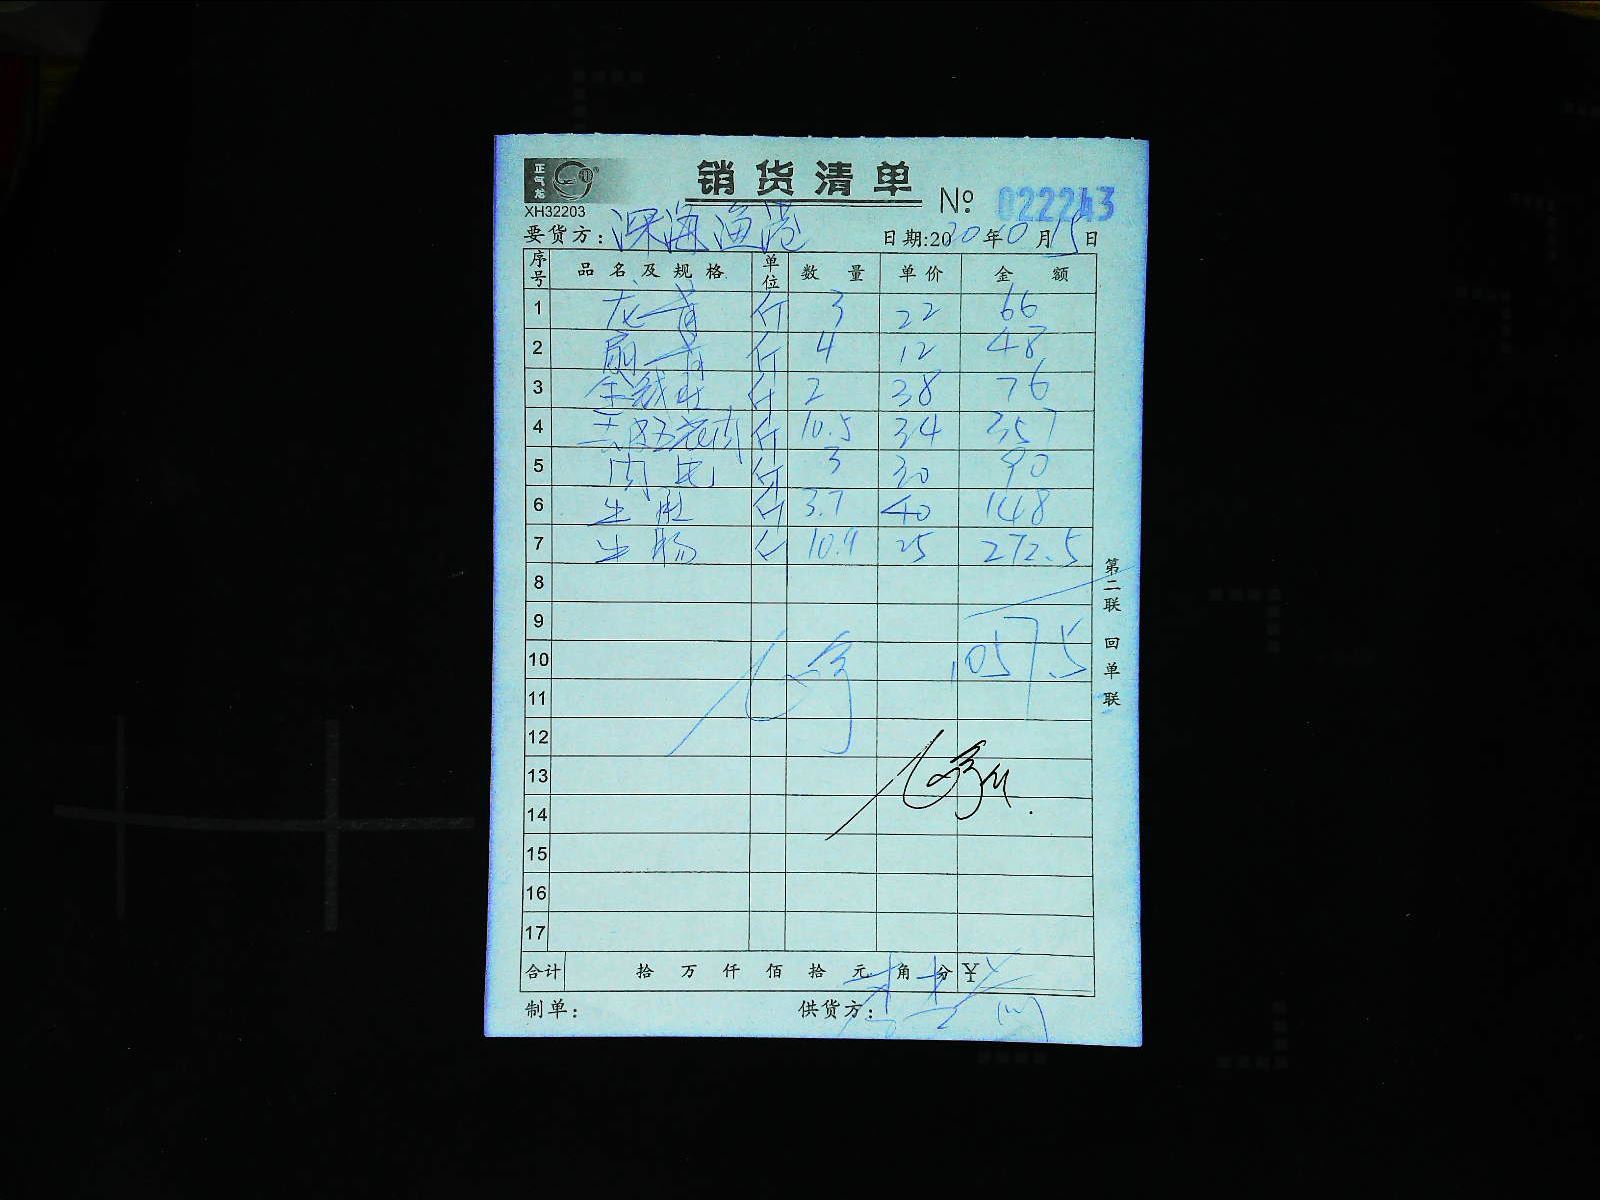 正气龙
销货清单
XH32203
№ 022243
要货方：深海渔港 日期:2020年10月15日
序号 品名及规格 单位 数量 单价 金额
1 龙骨 斤 3 22 66
2 扇骨 斤 4 12 48
3 金钱肚 斤 2 38 76
4 去皮五花肉 斤 10.5 34 357
5 肉 斤 3 30 90
6 生肚 斤 3.7 40 148
7 生肠 斤 10.9 25 272.5
8
9
10 1057.5
11
12
13
14
15
16
17
合计 拾 万 仟 佰 拾 元 角 分 ¥
制单： 供货方：
第二联 回单联